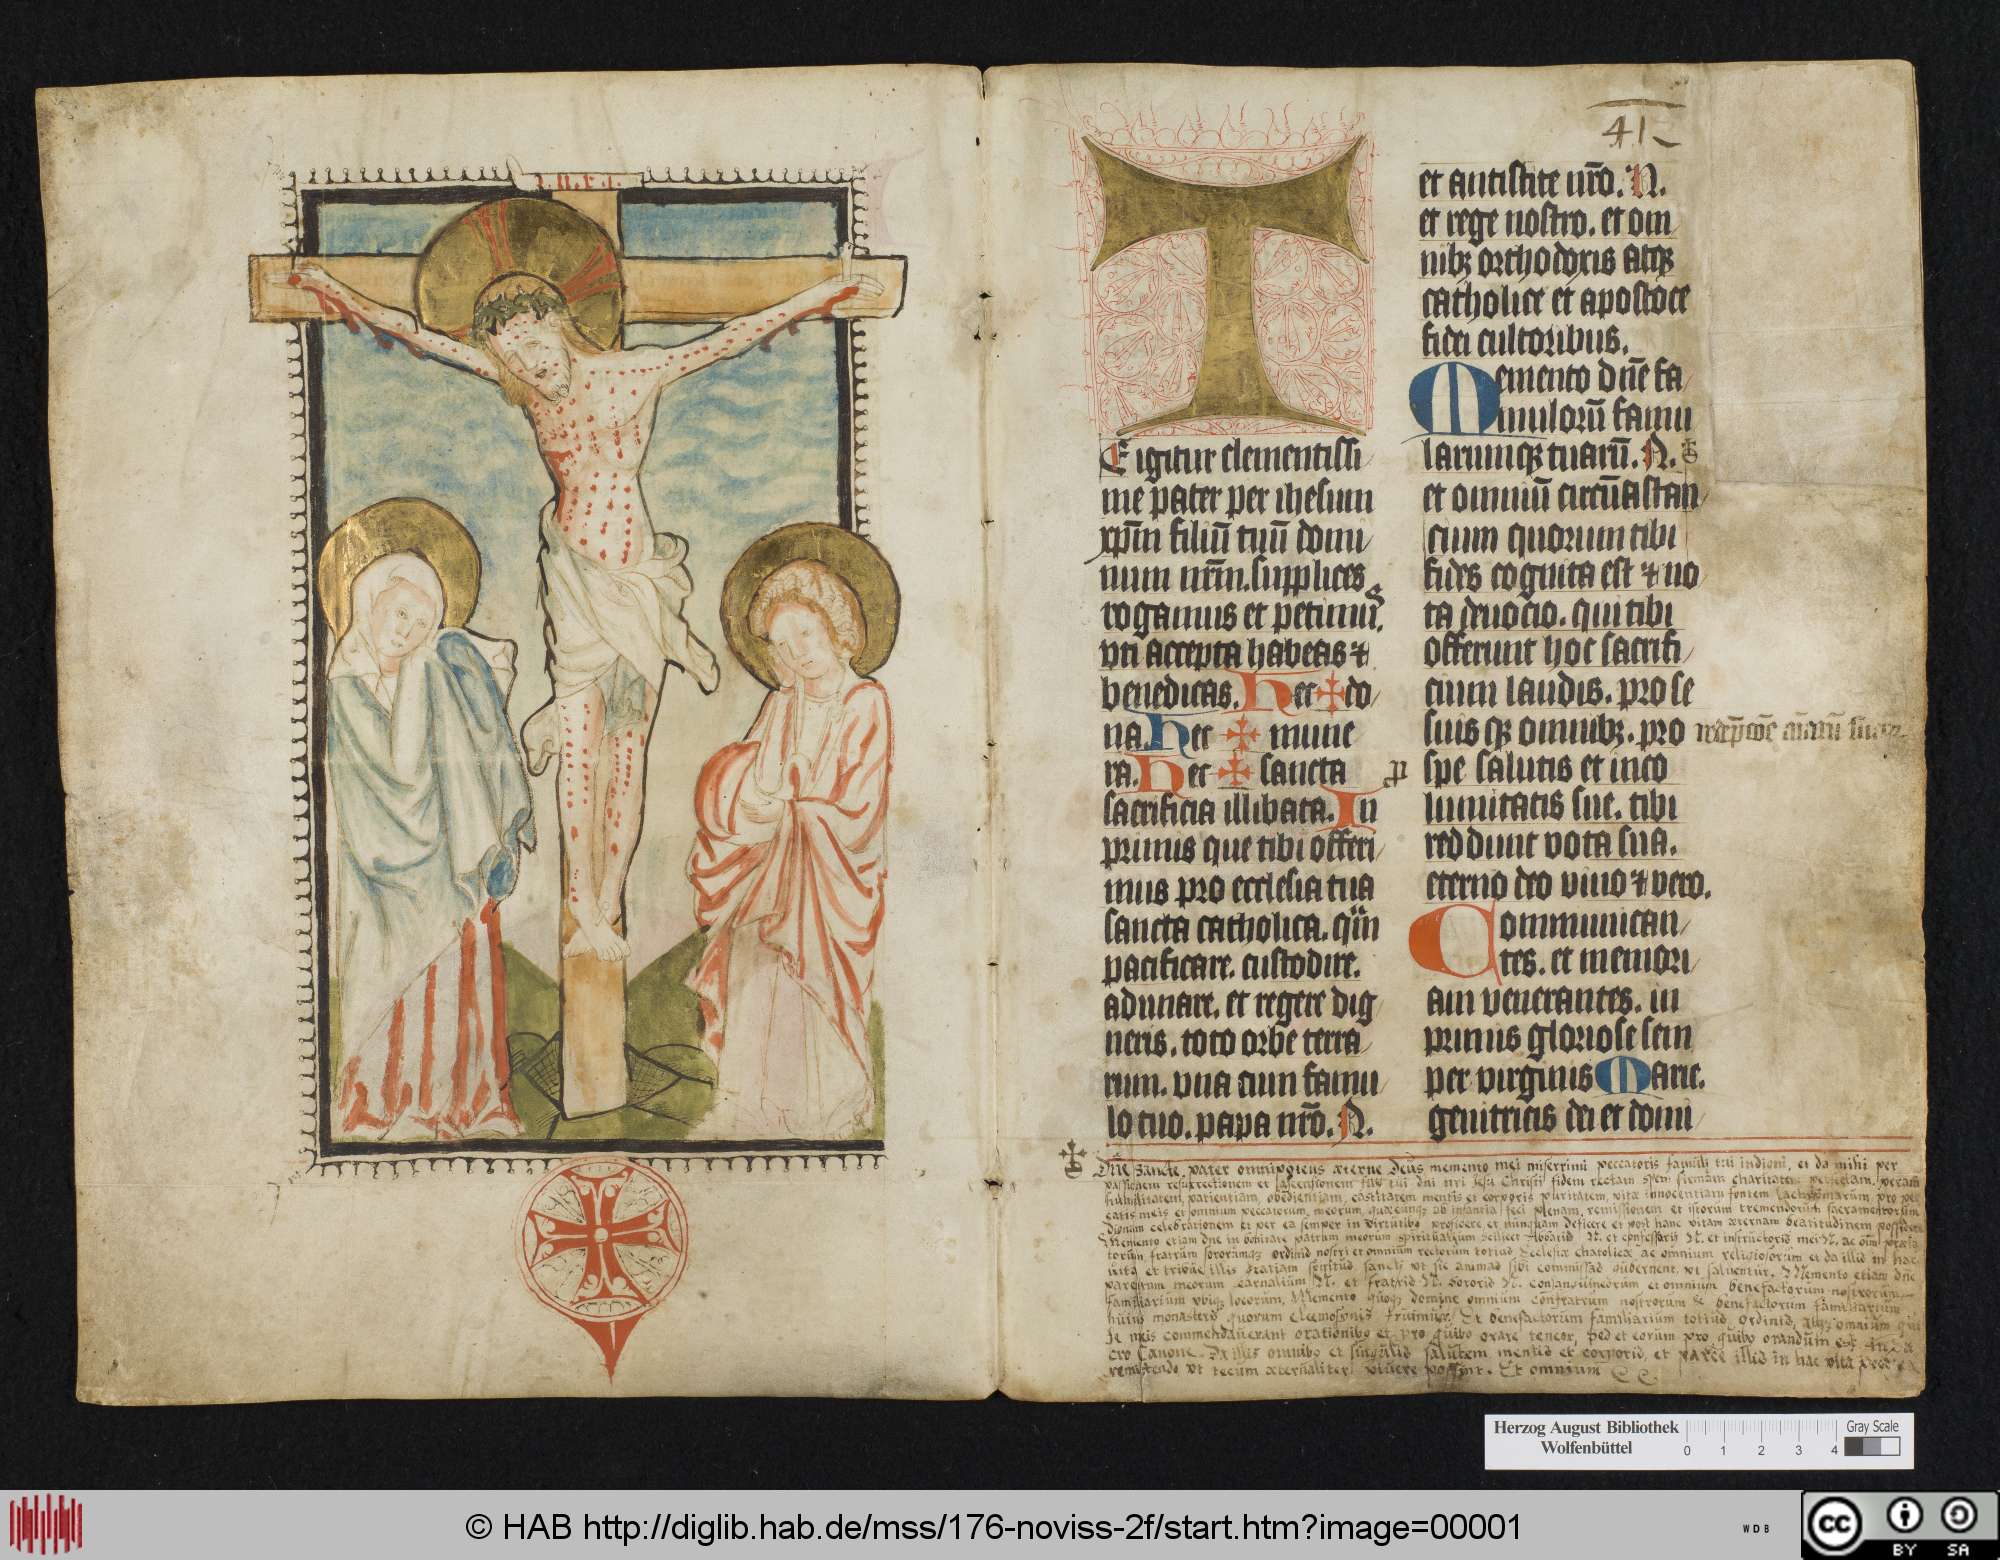 i.n.r.i.
41
T
E igitur clementissi
me pater per ihesum
xp̄m filiū tuū domi
num nr̄m. supplices
rogamus et petimus.
vti accepta habeas ⁊
benedicas. Hec ✠ do
na. Hec ✠ mune
ra. Hec ✠ sancta
sacrificia illibata. In
primis que tibi offeri
mus pro ecclesia tua
sancta catholica. quā
pacificare. custodire.
adunare. et regere dig
neris. toto orbe terra
rum. vna cum famu
lo tuo. papa nr̄o. N.
et antistite nr̄o. N.
et rege nostro. et om
nibꝫ orthodoxis atqꝫ
catholice et apostoce
fidei cultoribus.
Memento dn̄e fa
mulorū famu
larumqꝫ tuarū. N.
et omniū circūastan
cium quorum tibi
fides cognita est ⁊ no
ta deuocio. qui tibi
offerunt hoc sacrifi
cium laudis. pro se
suis qꝫ omnibꝫ. pro redēp̄coē
spe salutis et inco
lumitatis sue. tibi
reddunt vota sua.
eterno deo viuo ⁊ vero.
Communican
tes. et memori
am venerantes. in
primis gloriose sem
per virginis Marie.
genitricis dei et domi
Dn̄e sancte, pater omnipotens æterne Deus memento mei miserrimi peccatoris famuli tui indigni, et da mihi per
passionem resurrectionem et ascensionem filii tui dni nri Jesu Christi fidem rectam spem firmam charitatem perfectam, veram
humilitatem, patientiam, obedientiam, castitatem mentis et corporis puritatem, vitæ innocentiam fontem lachrymarum pro pec
catis meis et omnium peccatorum, meorum, quæcunqꝫ ab infantia feci plenam, remissionem et istorum tremendorum sacramentorum
dignam celebrationem et per ea semper in virtutibꝰ proficere et nunquam deficere et post hanc vitam æternam beatitudinem possidere
Memento etiam dne patrum meorum spiritualium scilicet Abbatis N. et confessoris N. et instructoris mei N. ac
torum, fratrum sororumqꝫ ordinis nostri et omnium rectorum totius Ecclesiæ chatolicæ ac omnium religiosorum et da illis in hac
vita et tribue illis gratiam spiritus sancti vt sic animas sibi commissas gubernent, vt saluentur. Memento etiam dne
parentum meorum carnalium N. et fratris N. sororis N. consanguineorum et omnium benefactorum nostrorum
familiarium vbiqꝫ locorum, Memento quoqꝫ domine omnium confratrum nostrorum & benefactorum familiarium
huius monasterij quorum eleemosinis fruimur. Et benefactorum familiarium totius ordinis, atqꝫ omnium qui
se meis commendauerunt orationibꝰ et pro quibꝰ orare teneor, sed et eorum pro quibꝰ orandum est
cro Canone. Da illis omnibꝰ et singulis salutem mentis et corporis, et parce illis in hac vita
remittendo vt tecum æternaliter viuere possint. Et omnium
Herzog August Bibliothek
Wolfenbüttel
0 1 2 3 4
Gray Scale
© HAB http://diglib.hab.de/mss/176-noviss-2f/start.htm?image=00001
WDB
cc BY SA